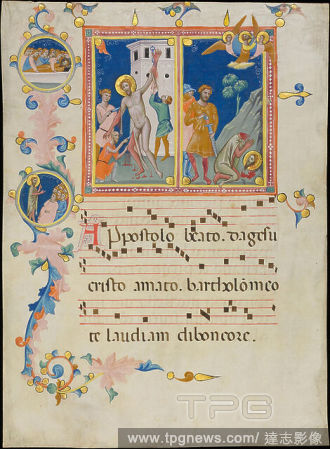 Appostolo beato. dagesu
cristo amato. bartholōmeo
te laudiam diboncore.
TPG
www.tpgnews.com/ 達志影像